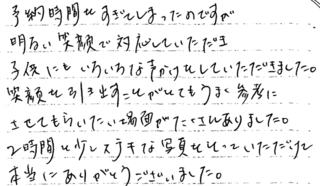 予約時間をすぎてしまったのですが
明るい笑顔で対応していただき
子供にもいろいろな声かけをしていただきました。
笑顔を引き出すことがとてもうまく参考に
させてもらいたい場面がたくさんありました。
2時間と少しステキな写真をとっていただけて
本当にありがとうございました。